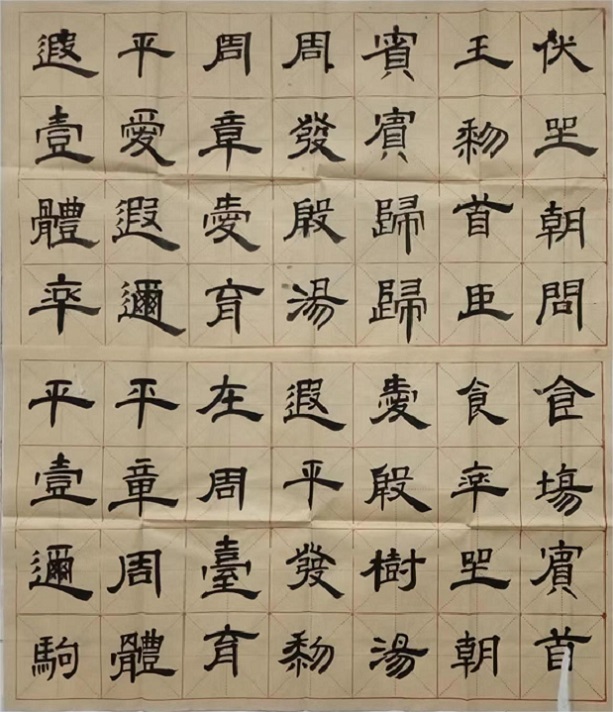 伏坐朝問食場賓首
王黎首臣食率坐朝
賓賓歸歸愛殷樹湯
周發殷湯遐平發黎
周章愛育在周臺育
平愛遐邇平章周體
遐壹體率平壹邇駒